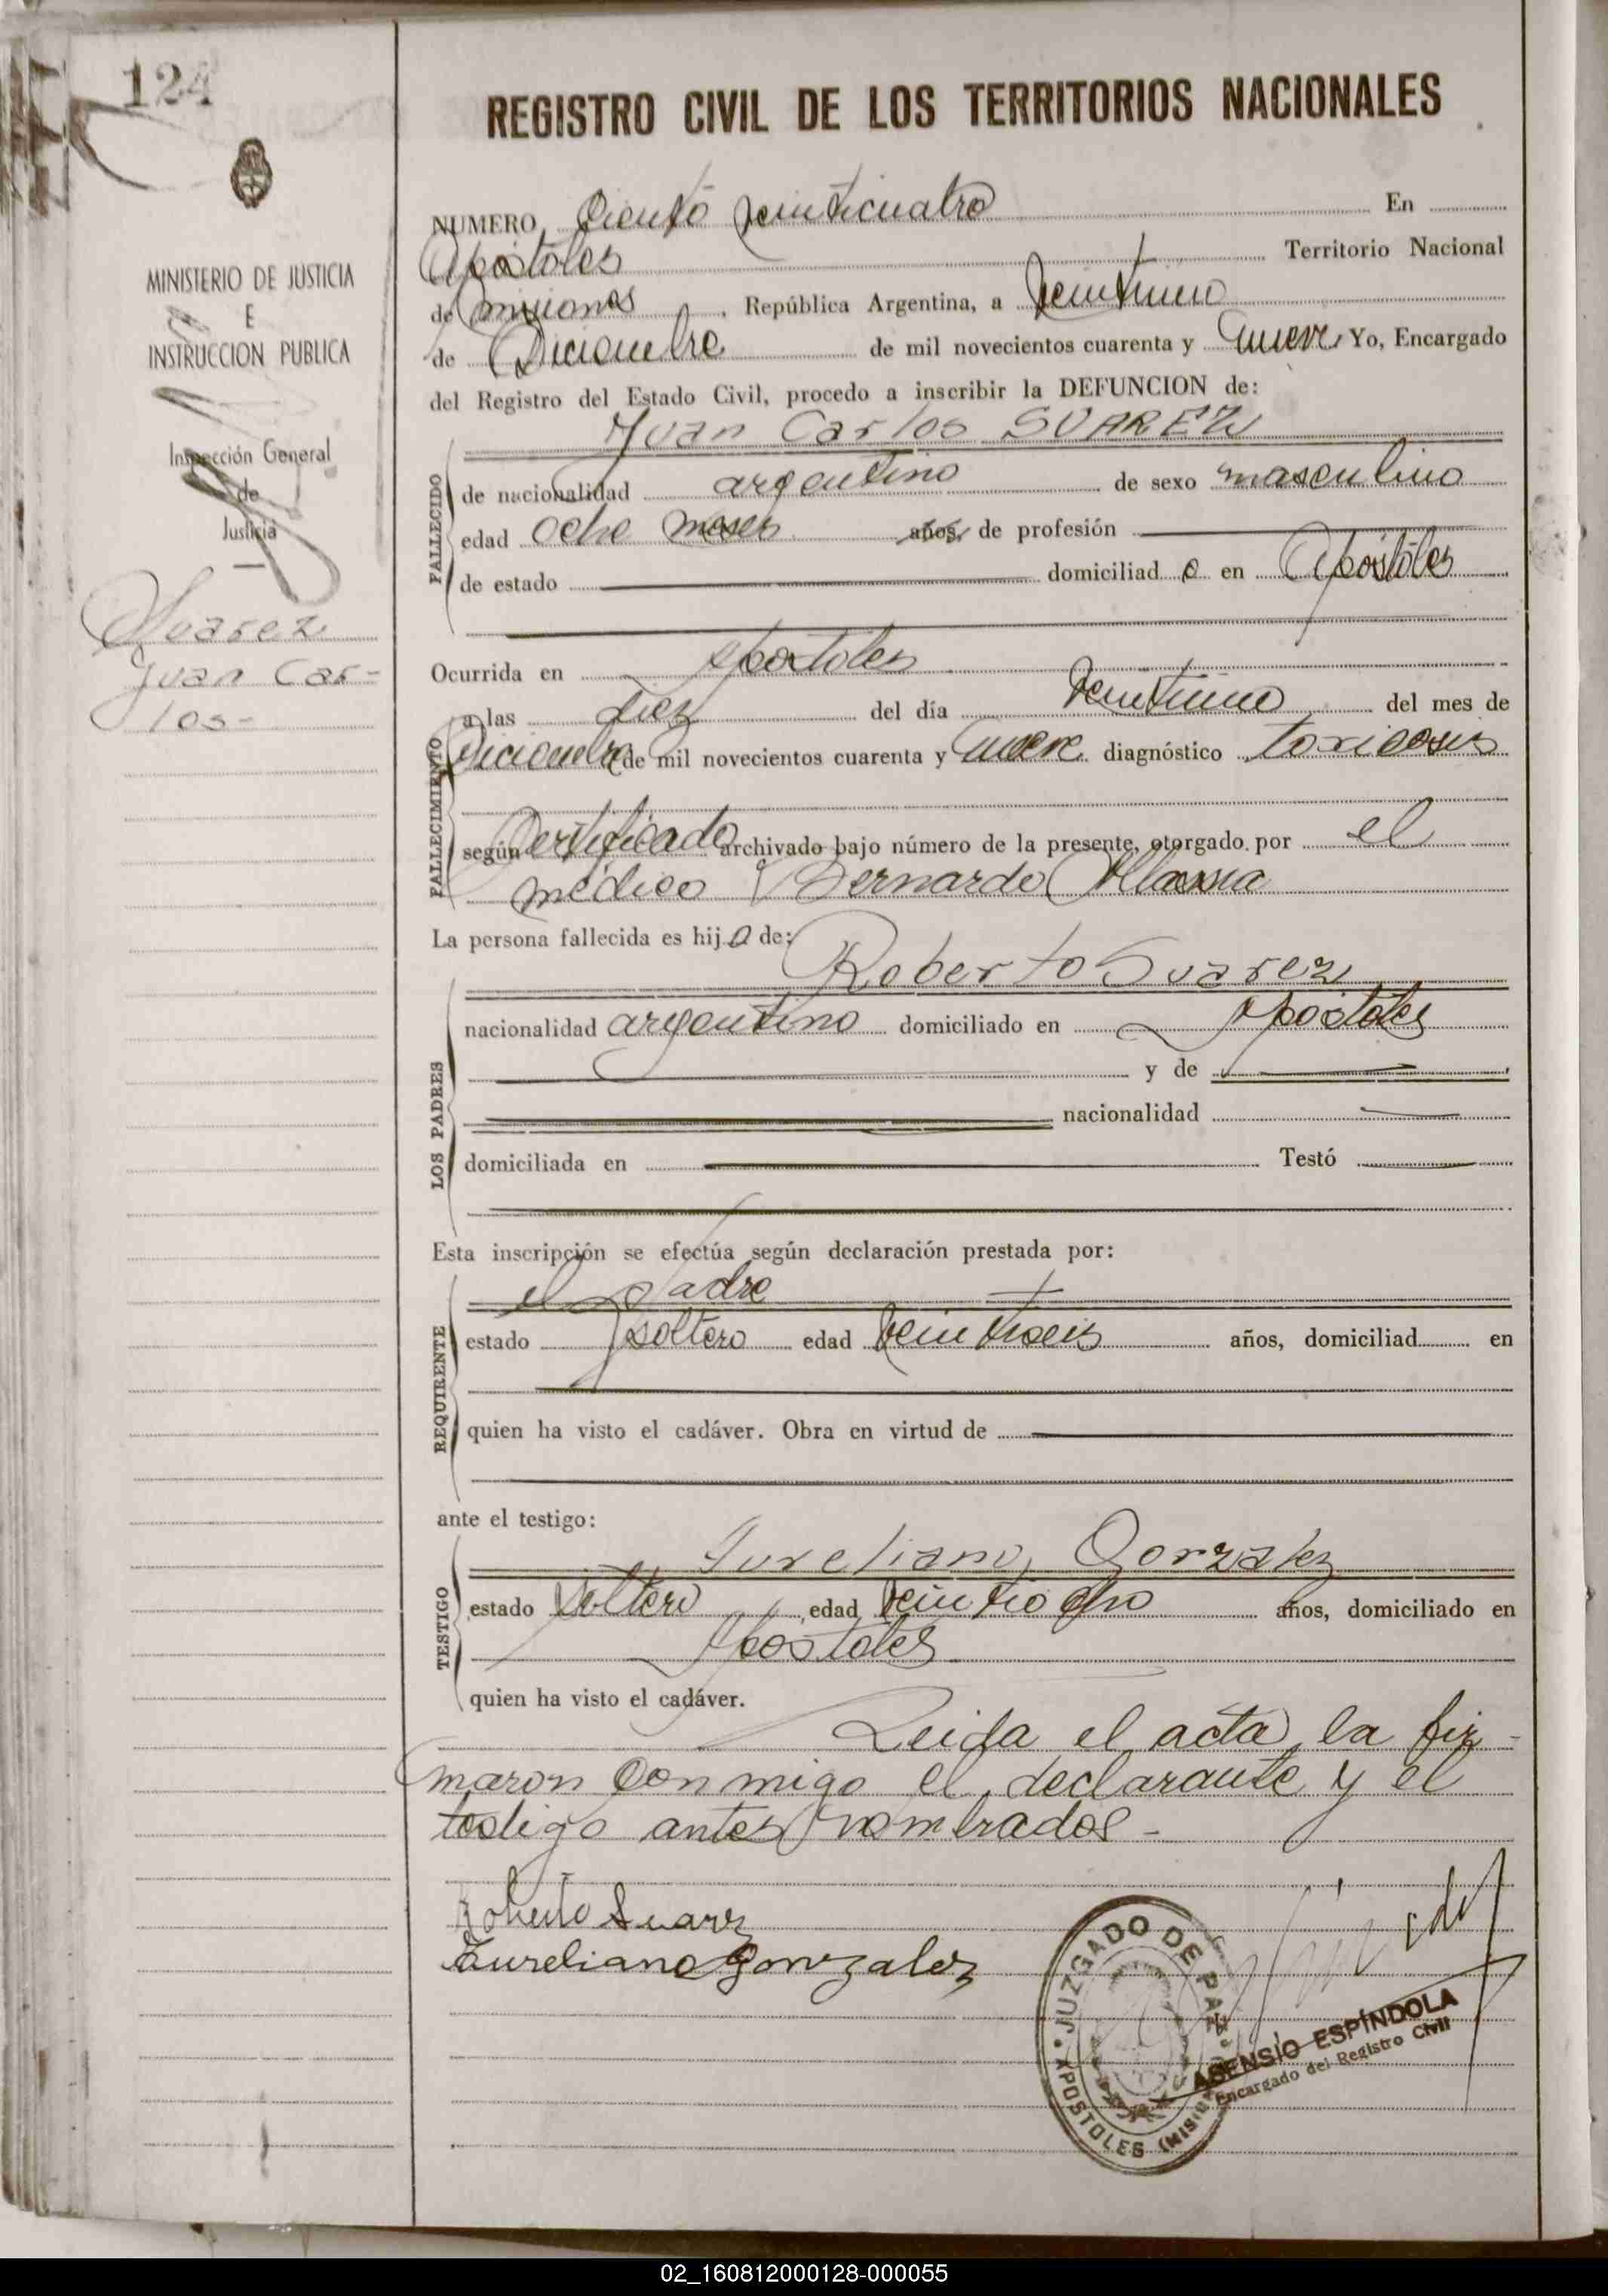 124
REGISTRO CIVIL DE LOS TERRITORIOS NACIONALES
MINISTERIO DE JUSTICIA
E
INSTRUCCION PUBLICA
Inspección General
de
Justicia
Suarez
Juan Car-
los-
NUMERO Ciento veinticuatro En
Apóstoles Territorio Nacional
de Misiones, República Argentina, a veintiuno
de Diciembre de mil novecientos cuarenta y nueve Yo, Encargado
del Registro del Estado Civil, procedo a inscribir la DEFUNCION de:
Juan Carlos SUAREZ
FALLECIDO
de nacionalidad argentino de sexo masculino
edad ocho meses años, de profesión
de estado domiciliad o en Apóstoles
FALLECIMIENTO
Ocurrida en Apostoles
a las diez del día veintiuno del mes de
Diciembre de mil novecientos cuarenta y nueve diagnóstico toxicosis
según Certificado archivado bajo número de la presente, otorgado por el
médico Bernardo
La persona fallecida es hijo de:
LOS PADRES
Roberto Suarez
nacionalidad argentino domiciliado en Apóstoles
y de
nacionalidad
domiciliada en Testó
Esta inscripción se efectúa según declaración prestada por:
REQUIRENTE
el padre
estado soltero edad veintiseis años, domiciliad en
quien ha visto el cadáver. Obra en virtud de
ante el testigo:
TESTIGO
Aureliano Gonzalez
estado soltero edad veintiocho años, domiciliado en
Apostoles
quien ha visto el cadáver.
Leida el acta, la fir-
maron conmigo el declarante y el
testigo antes nombrados-
Roberto Suarez
Aureliano Gonzalez
JUZGADO DE PAZ
APOSTOLES (MISIONES)
ASENSIO ESPÍNDOLA
Encargado del Registro Civil
02_160812000128-000055